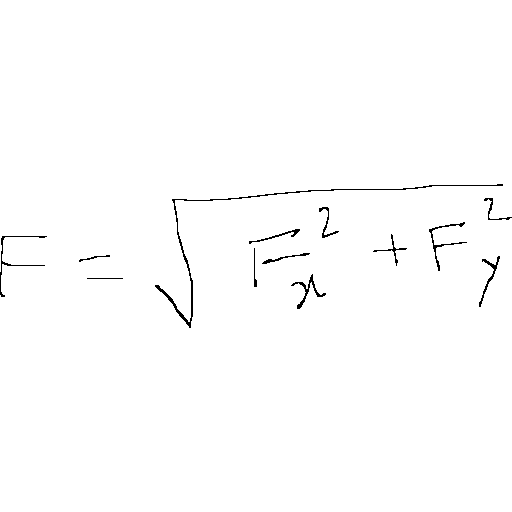 F = √(F_x^2 + F_y^2)